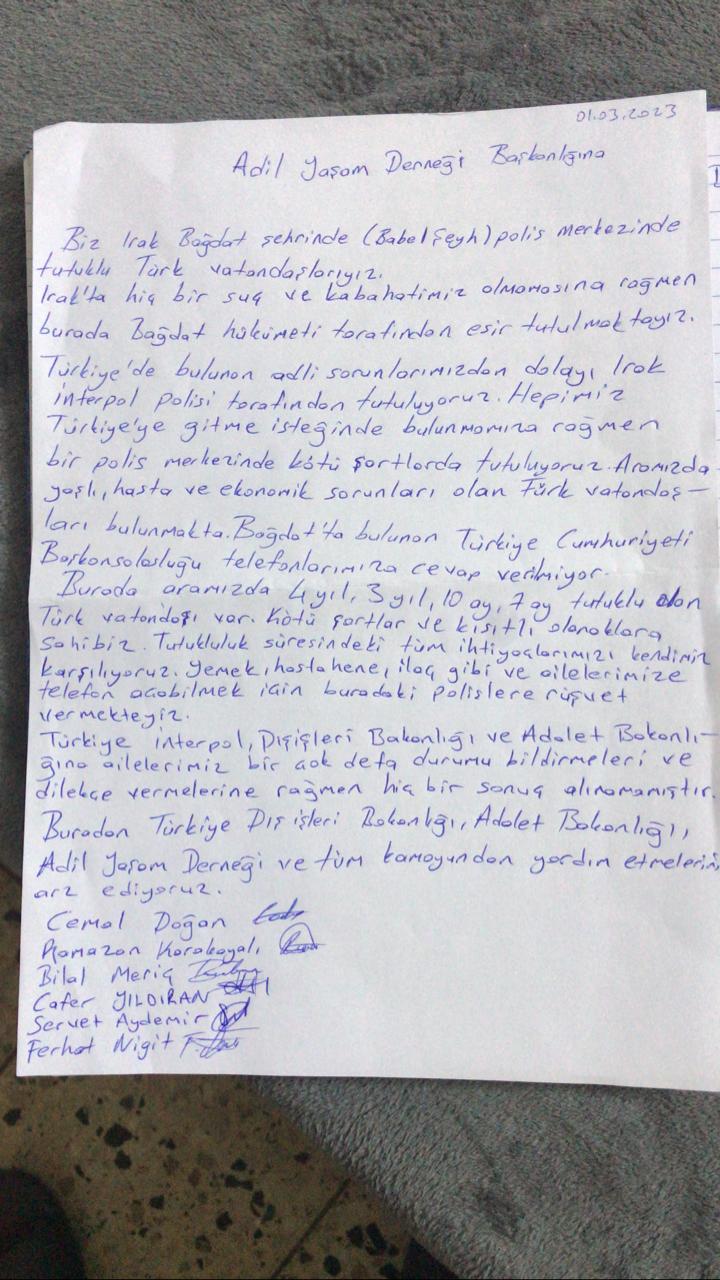 01.03.2023
Adil Yaşam Derneği Başkanlığına
Biz Irak Bağdat şehrinde (Babel Şeyh) polis merkezinde
tutuklu Türk vatandaşlarıyız.
Irak'ta hiç bir suç ve kabahatimiz olmamasına rağmen
burada Bağdat hükümeti tarafından esir tutulmaktayız.
Türkiye'de bulunan adli sorunlarımızdan dolayı Irak
interpol polisi tarafından tutuluyoruz. Hepimiz
Türkiye'ye gitme isteğinde bulunmamıza rağmen
bir polis merkezinde kötü şartlarda tutuluyoruz. Aramızda
yaşlı, hasta ve ekonomik sorunları olan Türk vatandaş-
ları bulunmakta. Bağdat'ta bulunan Türkiye Cumhuriyeti
Başkonsolosluğu telefonlarımıza cevap verilmiyor.
Burada aramızda 4 yıl, 3 yıl, 10 ay, 7 ay tutuklu olan
Türk vatandaşı var. Kötü şartlar ve kısıtlı olanaklara
sahibiz. Tutukluluk süresindeki tüm ihtiyaçlarımızı kendimiz
karşılıyoruz. Yemek, hastahene, ilaç gibi ve ailelerimize
telefon açabilmek için buradaki polislere rüşvet
vermekteyiz.
Türkiye interpol, Dışişleri Bakanlığı ve Adalet Bakanlı-
ğına ailelerimiz bir çok defa durumu bildirmeleri ve
dilekçe vermelerine rağmen hiç bir sonuç alınamamıştır.
Buradan Türkiye Dış işleri Bakanlığı, Adalet Bakanlığı,
Adil Yaşam Derneği ve tüm kamoyundan yardım etmelerini
arz ediyoruz.
Cemal Doğan
Ramazan Karakayalı
Bilal Meriç
Cafer YILDIRAN
Servet Aydemir
Ferhat Nigit